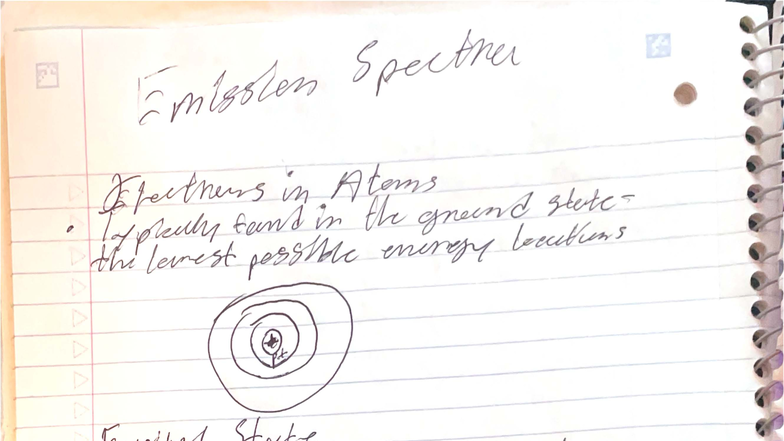 Emission Spectra
Electrons in Atoms
• Typically found in the ground state -
the lowest possible energy locations
Excited State